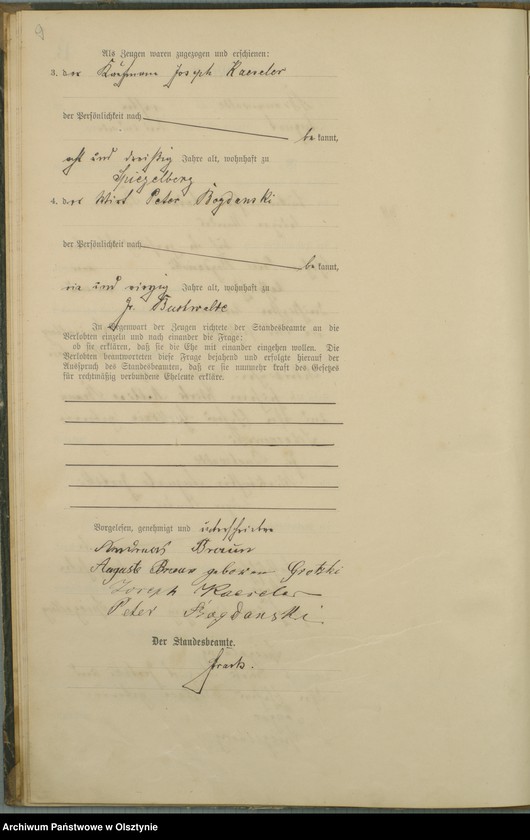 9
Als Zeugen waren zugezogen und erschienen:
3. der Kaufmann Joseph Kaeseler
der Persönlichkeit nach
be kannt,
acht und dreißig Jahre alt, wohnhaft zu
Spiegelberg
4. der Wirt Peter Bogdanski
der Persönlichkeit nach
be kannt,
vier und vierzig Jahre alt, wohnhaft zu
Gr. Buchwalde
In Gegenwart der Zeugen richtete der Standesbeamte an die
Verlobten einzeln und nach einander die Frage:
ob sie erklären, daß sie die Ehe mit einander eingehen wollen. Die
Verlobten beantworteten diese Frage bejahend und erfolgte hierauf der
Ausspruch des Standesbeamten, daß er sie nunmehr kraft des Gesetzes
für rechtmäßig verbundene Eheleute erkläre.
Vorgelesen, genehmigt und unterschrieben
Andreas Braun
Auguste Braun geboren Grotzki
Joseph Kaeseler
Peter Bogdanski
Der Standesbeamte.
Archiwum Państwowe w Olsztynie